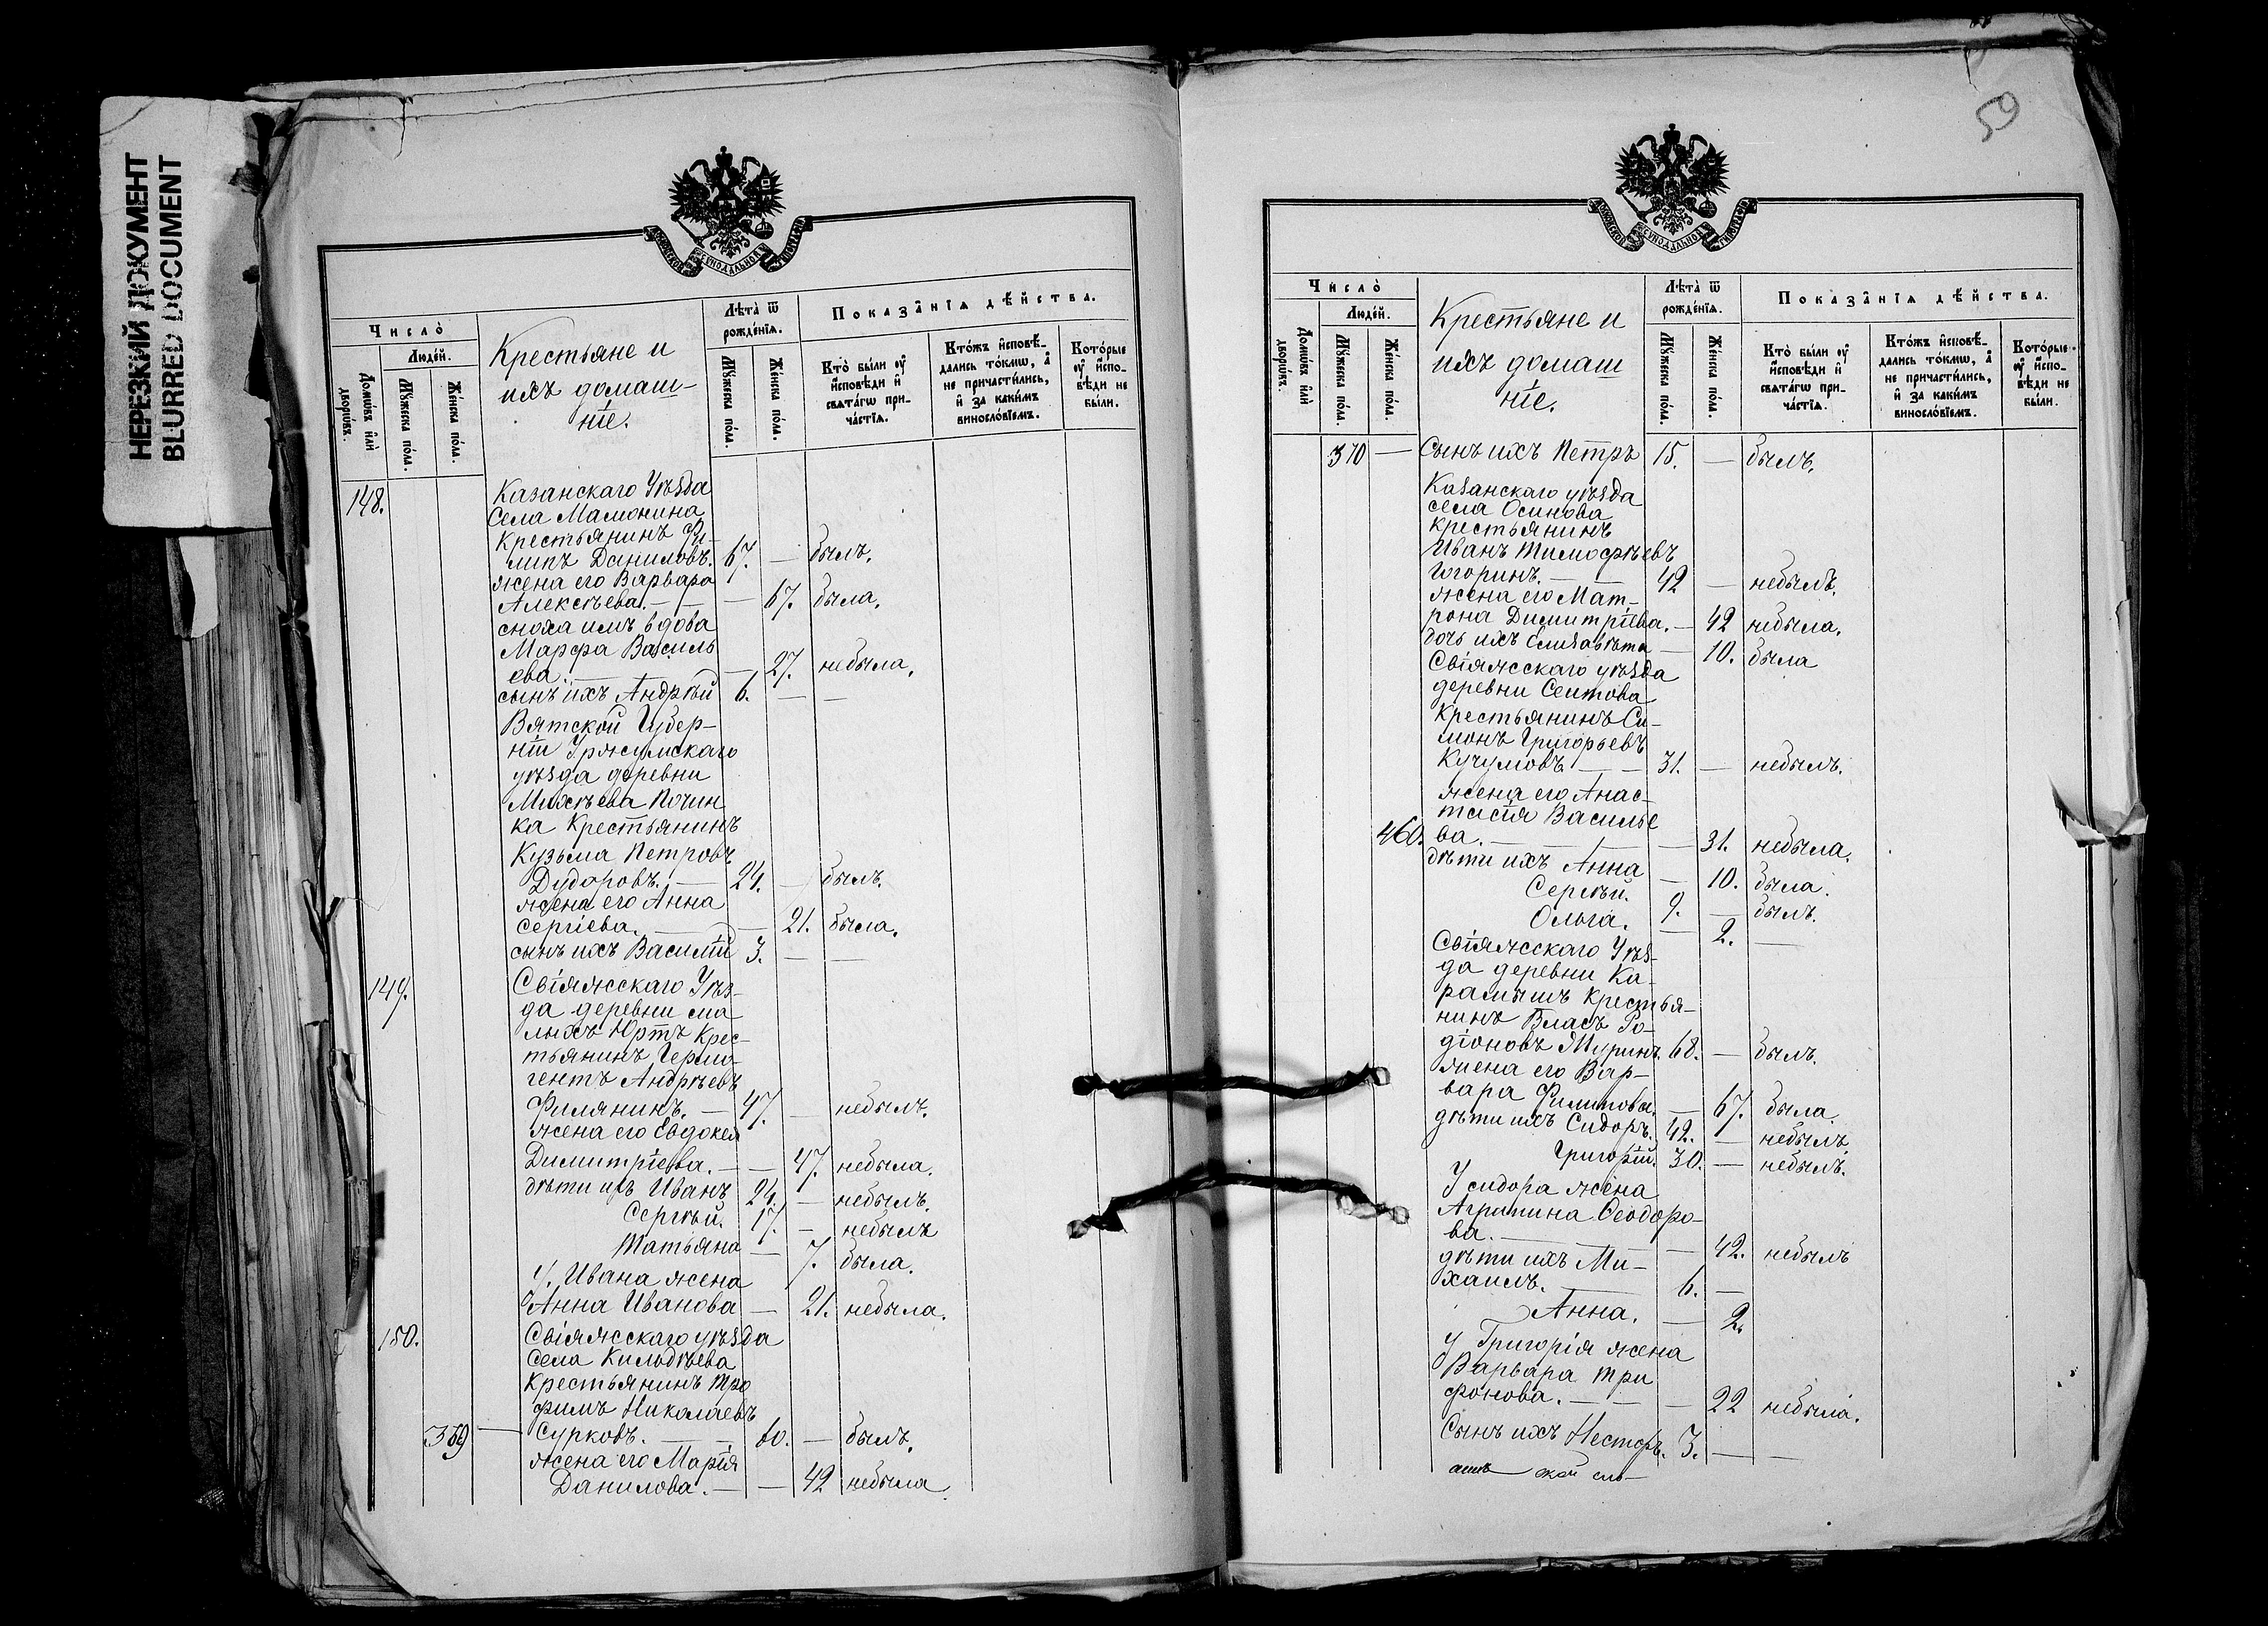 НЕРЕЗКИЙ ДОКУМЕНТ
BLURRED DOCUMENT
МОСКОВСКОЙ СѴНОДАЛЬНОЙ ТИПОГРАФІИ
Число̀
Люде́й.
Домѡ́въ и҆лѝ дворѡ́въ.
Мꙋ́жеска по́ла.
Же́нска по́ла.
Крестьяне и
ихъ домаш-
ніе.
Лѣта̀ ѿ рожде́нїѧ.
Мꙋ́жеска по́ла.
Же́нска по́ла.
Показа̑нїѧ дѣ́йства.
Кто̀ бы́ли ᲂу҆ и҆сповѣди и҆ свѧта́гѡ при-ча́стїѧ.
Кто́жъ и҆сповѣ-дались то́кмѡ, а҆ не причасти́лись, и҆ за каки́мъ винослові́емъ.
Кото́рые ᲂу҆ и҆спо-вѣди не бы́ли.
148. Казанскаго Уѣзда
Села Мамонина
Крестьянинъ Фи-
липъ Даниловъ. 67. — былъ.
жена его Варвара
Алексѣева. — — — 67. была.
сноха имъ вдова
Марфа Василь
ева. — — 27. небыла.
сынъ ихъ Андрѣй 6. — —
Вятской Губер-
ніи Уржумскаго
уѣзда деревни
Михѣева Почин
ка Крестьянинъ
Кузьма Петровъ
Дудоровъ. — 24. — былъ.
жена его Анна
Сергіева. — — 21. была.
сынъ ихъ Василій 3. — —
149. Свіяжсскаго Уѣз-
да деревни ма
лыхъ Юртъ Крес-
тьянинъ Гермо
гентъ Андрѣевъ
Филянинъ. — 47. — небылъ.
жена его Евдокея
Димитріева. — — 47. небыла.
дѣти ихъ Иванъ 24. — небылъ.
Сергѣй. 17. — небылъ
Татьяна — 7. была.
У. Ивана жена
Анна Иванова — 21. небыла.
150. Свіяжсскаго уѣзда
Села Кильдѣева
Крестьянинъ Тро
фимъ Николаевъ
369 — Сурковъ. — — 60. — былъ.
жена его Марія
Данилова. — — 42 небыла
59
МОСКОВСКОЙ СѴНОДАЛЬНОЙ ТИПОГРАФІИ
Число̀
Люде́й.
Домѡ́въ и҆лѝ дворѡ́въ.
Мꙋ́жеска по́ла.
Же́нска по́ла.
Крестьяне и
ихъ домаш
ніе.
Лѣта̀ ѿ рожде́нїѧ.
Мꙋ́жеска по́ла.
Же́нска по́ла.
Показа̑нїѧ дѣ́йства.
Кто̀ бы́ли ᲂу҆ и҆сповѣди и҆ свѧта́гѡ при-ча́стїѧ.
Кто́жъ и҆сповѣ-дались то́кмѡ, а҆ не причасти́лись, и҆ за каки́мъ винослові́емъ.
Кото́рые ᲂу҆ и҆спо-вѣди не бы́ли.
370 — Сынъ ихъ Петръ 15. — былъ.
Казанскаго уѣзда
села Осинова
крестьянинъ
Иванъ Тимофѣевъ
Игоринъ. — — 42 — небылъ.
жена его Мат-
рона Димитріева. — 42 небыла.
дочь ихъ Елизавѣта — 10. была
Свіяжсскаго уѣзда
деревни Сеитова
Крестьянинъ Си-
монъ Григорьевъ
Кучумовъ. — — 31. — небылъ.
жена его Анас-
тасія Василье
460. ва. — — 31. небыла.
дѣти ихъ Анна — 10. была.
Сергѣй. 9. — былъ.
Ольга. — 2. —
Свіяжсскаго Уѣз-
да деревни Ка-
рамышъ Крестья-
нинъ Власъ Ро-
діоновъ Муринъ. 68. — былъ.
жена его Вар-
вара Филипова. — 67. была
дѣти ихъ Сидоръ. 42. — небылъ
Григорій. 30. — небылъ.
У сидора жена
Агрипина Ѳеодоро-
ва. — — 42. небылъ
дѣти ихъ Ми-
хаилъ. — 6. —
Анна. — 2.
У Григорія жена
Варвара Три
фонова. — — — 22 небыла.
Сынъ ихъ Несторъ. 3. — —